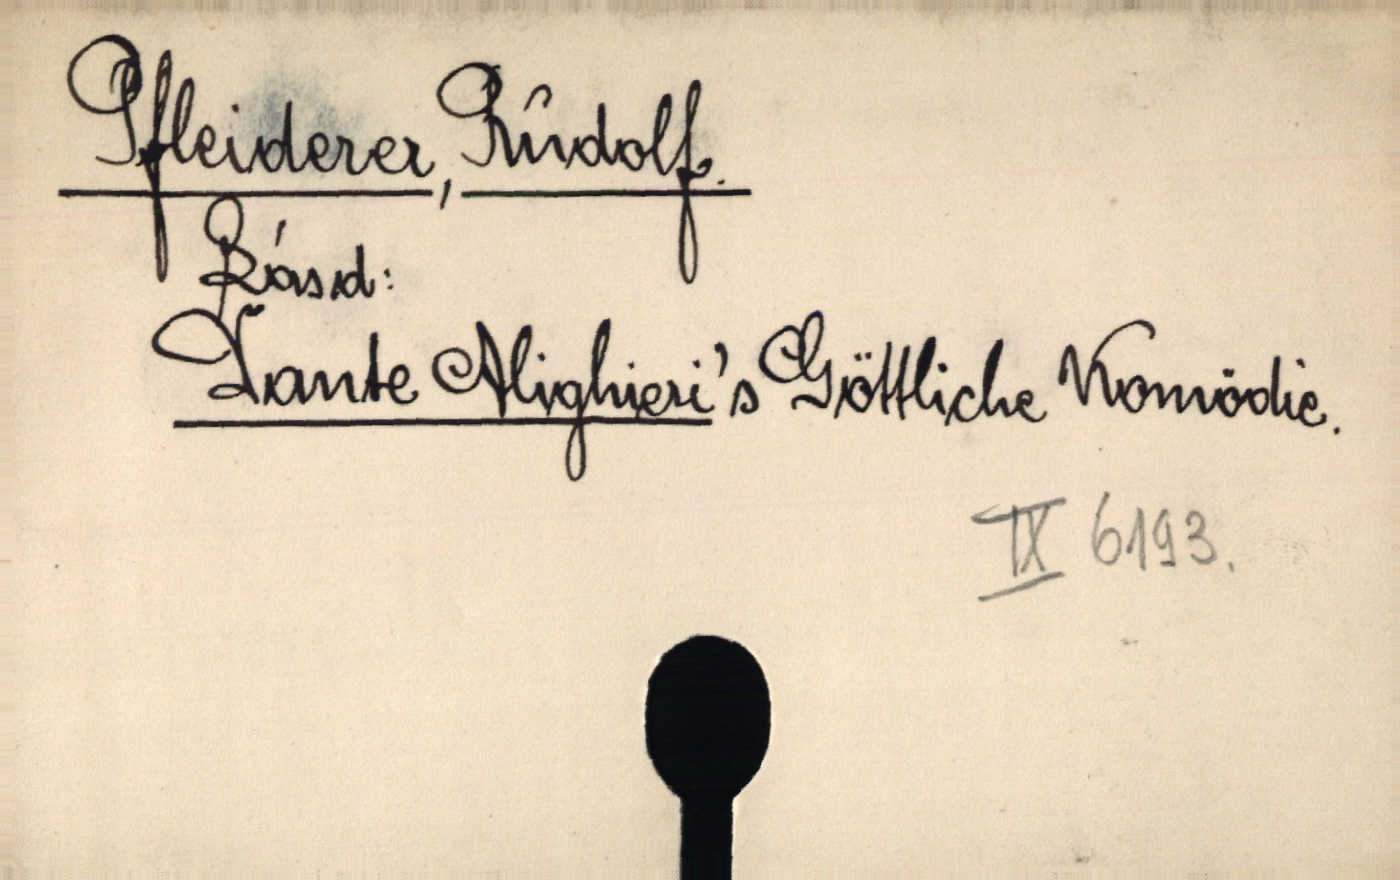 Pfleiderer, Rudolf.
Lásd:
Dante Alighieri's Göttliche Komödie.
IX 6193.